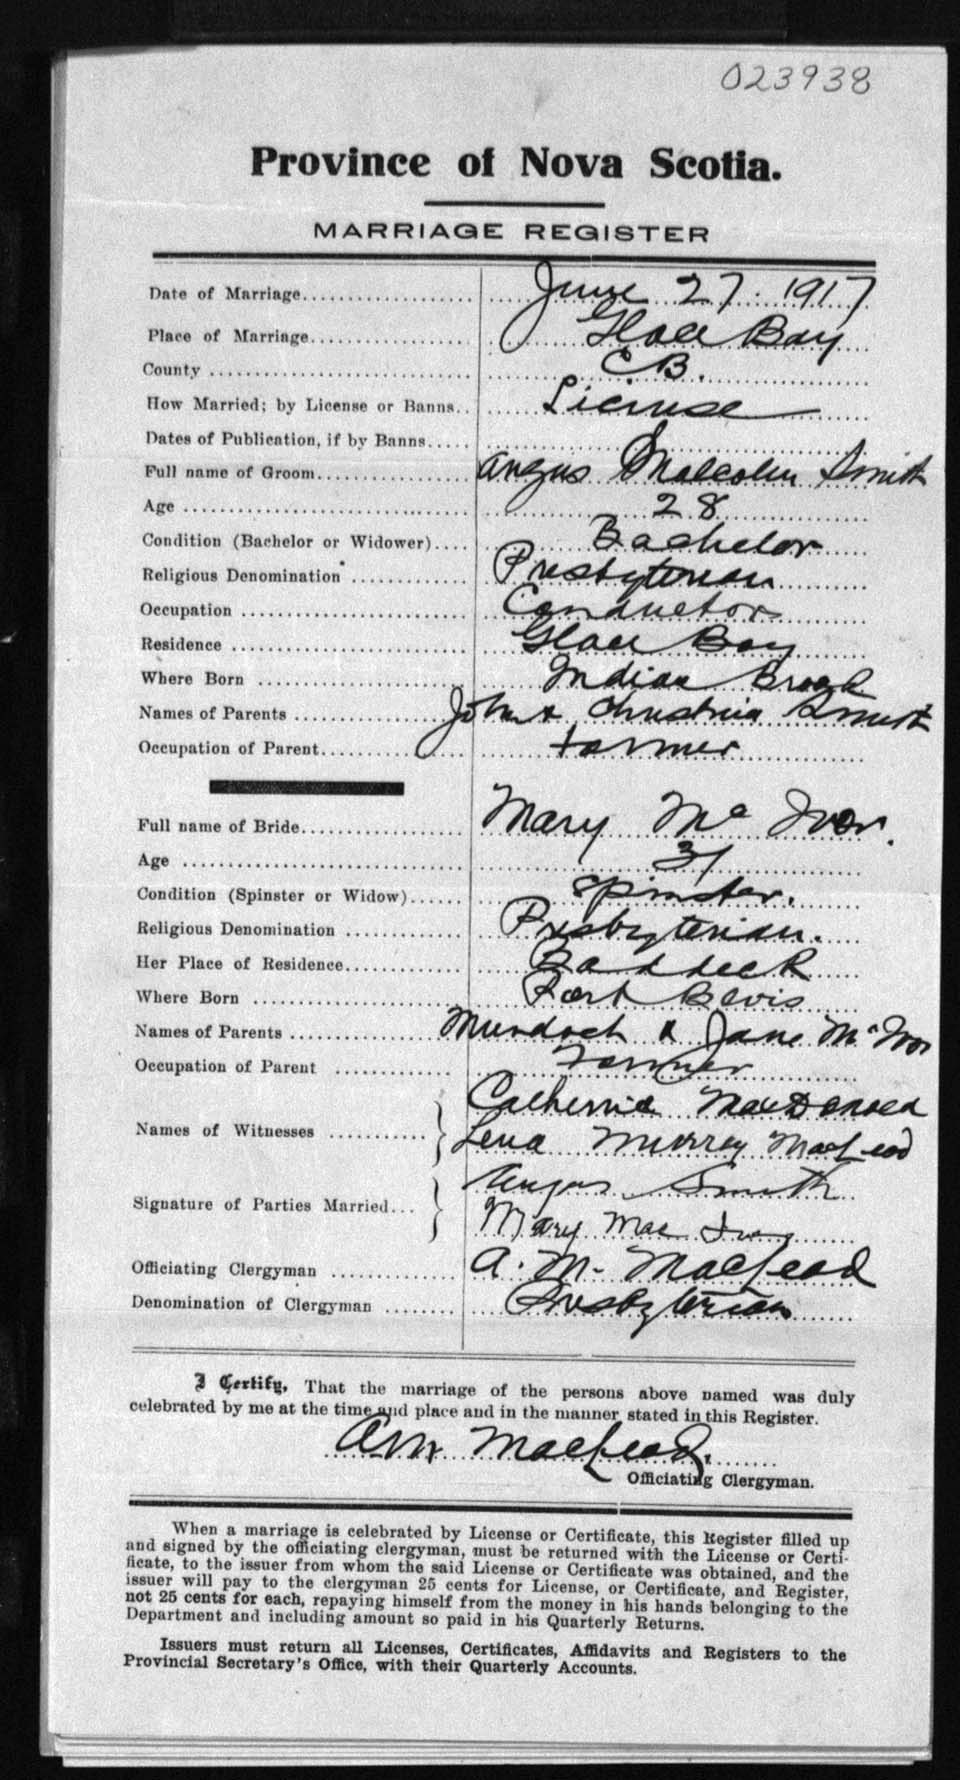 023938
Province of Nova Scotia.
MARRIAGE REGISTER
Date of Marriage.................... June 27. 1917
Place of Marriage................... Glace Bay
County .............................. C.B.
How Married; by License or Banns.. License
Dates of Publication, if by Banns.....
Full name of Groom.................. Angus Malcolm Smith
Age ................................. 28
Condition (Bachelor or Widower).... Bachelor
Religious Denomination .............. Presbyterian
Occupation .......................... Conductor
Residence ........................... Glace Bay
Where Born .......................... Indian Brook
Names of Parents .................... John & Christina Smith
Occupation of Parent................. Farmer
Full name of Bride................... Mary Mc Ivor.
Age ................................. 31
Condition (Spinster or Widow)...... Spinster.
Religious Denomination .............. Presbyterian.
Her Place of Residence.............. Baddeck
Where Born .......................... Port Bevis
Names of Parents .................... Murdoch & Jane Mc Ivor
Occupation of Parent ................ Farmer
Names of Witnesses ........... Catherine MacDonald
Lena Murray MacLeod
Signature of Parties Married... Angus Smith
Mary Mac Ivor
Officiating Clergyman ............. A. M. MacLeod
Denomination of Clergyman ........ Presbyterian
I Certify, That the marriage of the persons above named was duly
celebrated by me at the time and place and in the manner stated in this Register.
AM MacLeod.
Officiating Clergyman.
When a marriage is celebrated by License or Certificate, this Register filled up
and signed by the officiating clergyman, must be returned with the License or Certi-
ficate, to the issuer from whom the said License or Certificate was obtained, and the
issuer will pay to the clergyman 25 cents for License, or Certificate, and Register,
not 25 cents for each, repaying himself from the money in his hands belonging to the
Department and including amount so paid in his Quarterly Returns.
Issuers must return all Licenses, Certificates, Affidavits and Registers to the
Provincial Secretary's Office, with their Quarterly Accounts.